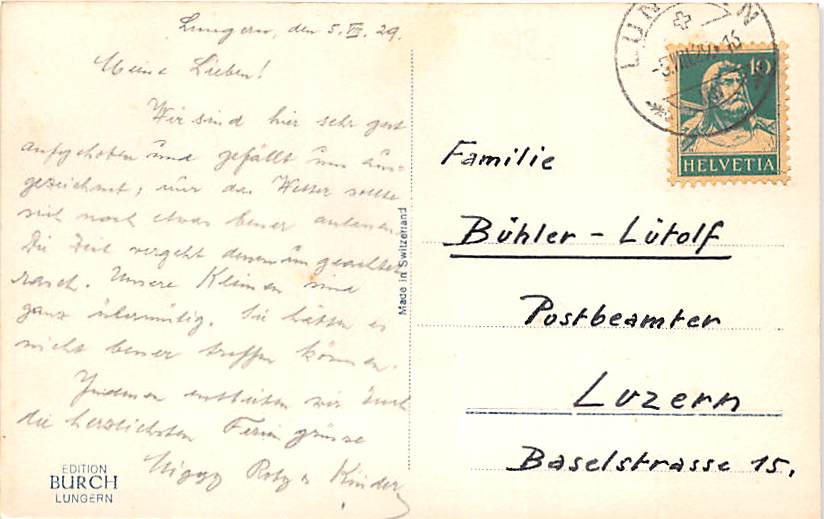 Lungern, den 5. VIII. 29.
Meine Lieben!
Wir sind hier sehr gut
aufgehoben und gefällt uns aus-
gezeichnet, nur das Wetter sollte
sich noch etwas besser anlassen
Die Zeit vergeht dessen ungeachtet
rasch. Unsere Kleinen sind
ganz übermütig. Sie hätten es
nicht besser treffen können.
Indessen entbieten wir Euch
die herzlichsten Feriengrüsse
Kinder
EDITION
BURCH
LUNGERN
Made in Switzerland
10
HELVETIA
Familie
Bühler - Lütolf
Postbeamter
Luzern
Baselstrasse 15.